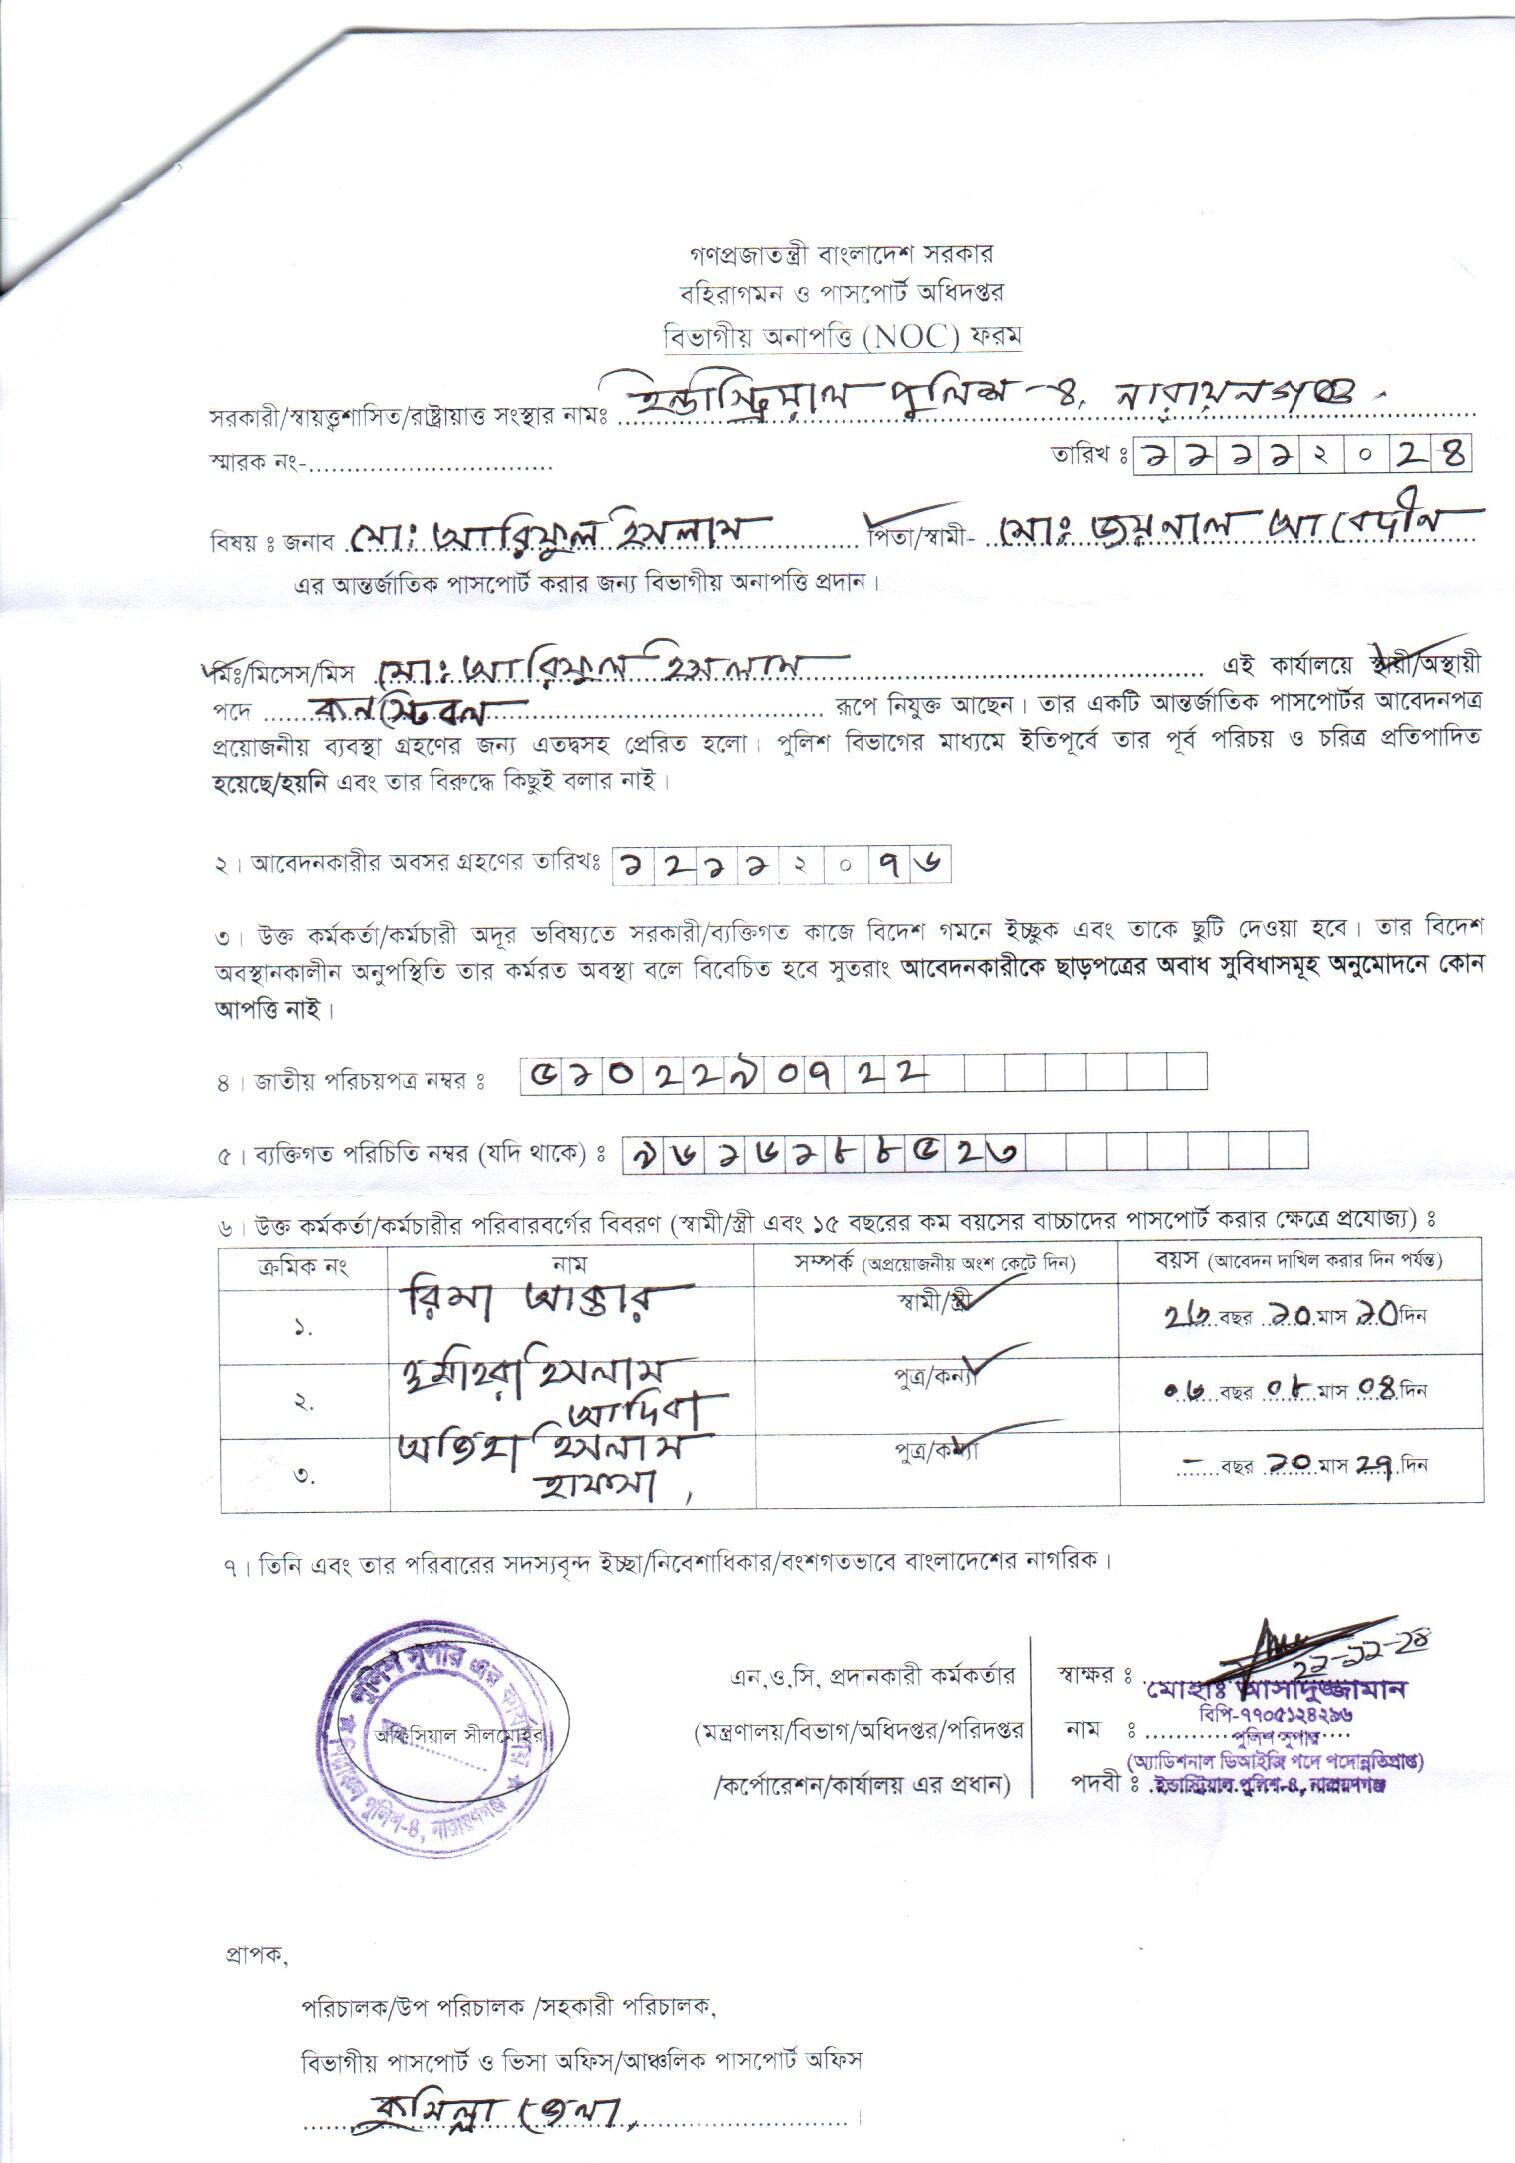 গণপ্রজাতন্ত্রী বাংলাদেশ সরকার
বহিরাগমন ও পাসপোর্ট অধিদপ্তর
বিভাগীয় অনাপত্তি (NOC) ফরম
সরকারী/স্বায়ত্ত্বশাসিত/রাষ্ট্রায়াত্ত সংস্থার নামঃ ইন্ডাস্ট্রিয়াল পুলিশ-৪, নারায়নগঞ্জ
স্মারক নং-.............................. তারিখ ঃ ১১১১২০২৪
বিষয় ঃ জনাব মোঃ আরিফুল ইসলাম পিতা/স্বামী- মোঃ জয়নাল আবেদীন
এর আন্তর্জাতিক পাসপোর্ট করার জন্য বিভাগীয় অনাপত্তি প্রদান।
মিঃ/মিসেস/মিস মোঃ আরিফুল ইসলাম এই কার্যালয়ে স্থায়ী/অস্থায়ী
পদে কনস্টেবল রূপে নিযুক্ত আছেন। তার একটি আন্তর্জাতিক পাসপোর্টের আবেদনপত্র
প্রয়োজনীয় ব্যবস্থা গ্রহণের জন্য এতদ্বসহ প্রেরিত হলো। পুলিশ বিভাগের মাধ্যমে ইতিপূর্বে তার পূর্ব পরিচয় ও চরিত্র প্রতিপাদিত
হয়েছে/হয়নি এবং তার বিরুদ্ধে কিছুই বলার নাই।
২। আবেদনকারীর অবসর গ্রহণের তারিখঃ ১২১১২০৭৬
৩। উক্ত কর্মকর্তা/কর্মচারী অদূর ভবিষ্যতে সরকারী/ব্যক্তিগত কাজে বিদেশ গমনে ইচ্ছুক এবং তাকে ছুটি দেওয়া হবে। তার বিদেশ
অবস্থানকালীন অনুপস্থিতি তার কর্মরত অবস্থা বলে বিবেচিত হবে সুতরাং আবেদনকারীকে ছাড়পত্রের অবাধ সুবিধাসমূহ অনুমোদনে কোন
আপত্তি নাই।
৪। জাতীয় পরিচয়পত্র নম্বর ঃ ৫১০২২৯০৭২২
৫। ব্যক্তিগত পরিচিতি নম্বর (যদি থাকে) ঃ ৯৬১৬১৮৮৫২৩
৬। উক্ত কর্মকর্তা/কর্মচারীর পরিবারবর্গের বিবরণ (স্বামী/স্ত্রী এবং ১৫ বছরের কম বয়সের বাচ্চাদের পাসপোর্ট করার ক্ষেত্রে প্রযোজ্য) ঃ
ক্রমিক নং নাম সম্পর্ক (অপ্রয়োজনীয় অংশ কেটে দিন) বয়স (আবেদন দাখিল করার দিন পর্যন্ত)
১. রিমা আক্তার স্বামী/স্ত্রী ২৬ বছর ১০ মাস ১০ দিন
২. হুমাইরা ইসলাম আদিবা পুত্র/কন্যা ০৬ বছর ০৮ মাস ০৪ দিন
৩. ইসলাম হাফসা, পুত্র/কন্যা - বছর ১০ মাস ২৭ দিন
৭। তিনি এবং তার পরিবারের সদস্যবৃন্দ ইচ্ছা/নিবেশাধিকার/বংশগতভাবে বাংলাদেশের নাগরিক।
পুলিশ সুপার এর কার্যালয়
অফিসিয়াল সীলমোহর
পুলিশ-৪, নারায়ণগঞ্জ
এন,ও,সি, প্রদানকারী কর্মকর্তার স্বাক্ষর ঃ
মোহাঃ আসাদুজ্জামান
বিপি-৭৭০৫১২৪২৯৬
(মন্ত্রণালয়/বিভাগ/অধিদপ্তর/পরিদপ্তর নাম ঃ পুলিশ সুপার
(অ্যাডিশনাল ডিআইজি পদে পদোন্নতিপ্রাপ্ত)
/কর্পোরেশন/কার্যালয় এর প্রধান) পদবী ঃ ইন্ডাস্ট্রিয়াল পুলিশ-৪, নারায়ণগঞ্জ
প্রাপক,
পরিচালক/উপ পরিচালক /সহকারী পরিচালক,
বিভাগীয় পাসপোর্ট ও ভিসা অফিস/আঞ্চলিক পাসপোর্ট অফিস
কুমিল্লা জেলা,